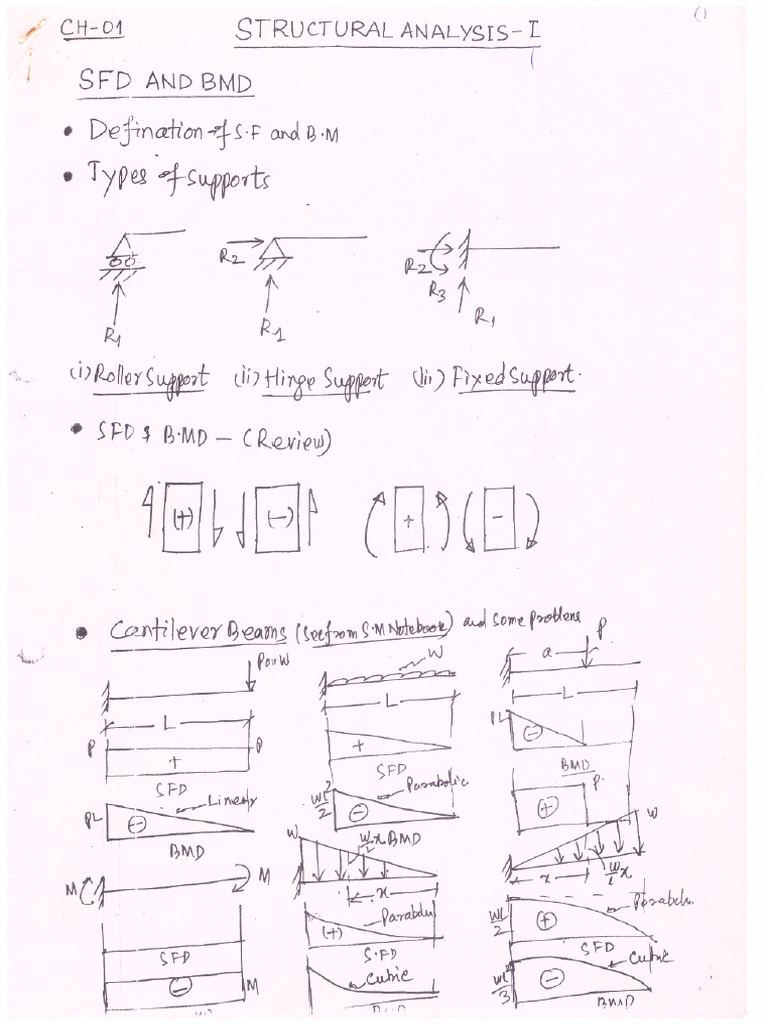 CH-01 STRUCTURAL ANALYSIS-I
SFD AND BMD
• Defination of S.F and B.M
• Types of Supports
R2 R2
R3
R1 R1 R1
(i) Roller Support (ii) Hinge Support (iii) Fixed Support.
• SFD & B.MD – (Review)
(+) (–) + –
• Cantilever Beams (See from S.M Notebook) and some problems
P or W
L
P + P
SFD
PL ⊖ Linear
BMD
W
L
+
SFD
WL²/2 ⊖ Parabolic
BMD
a P
L
PL ⊖
BMD
P.
⊕
M M
SFD
⊖ M
W W/L x
x
(+) Parabolic
S.FD
Cubic
W
x W/L x
WL/2 ⊕ Parabolic
SFD
WL²/3 ⊖ Cubic
BMD